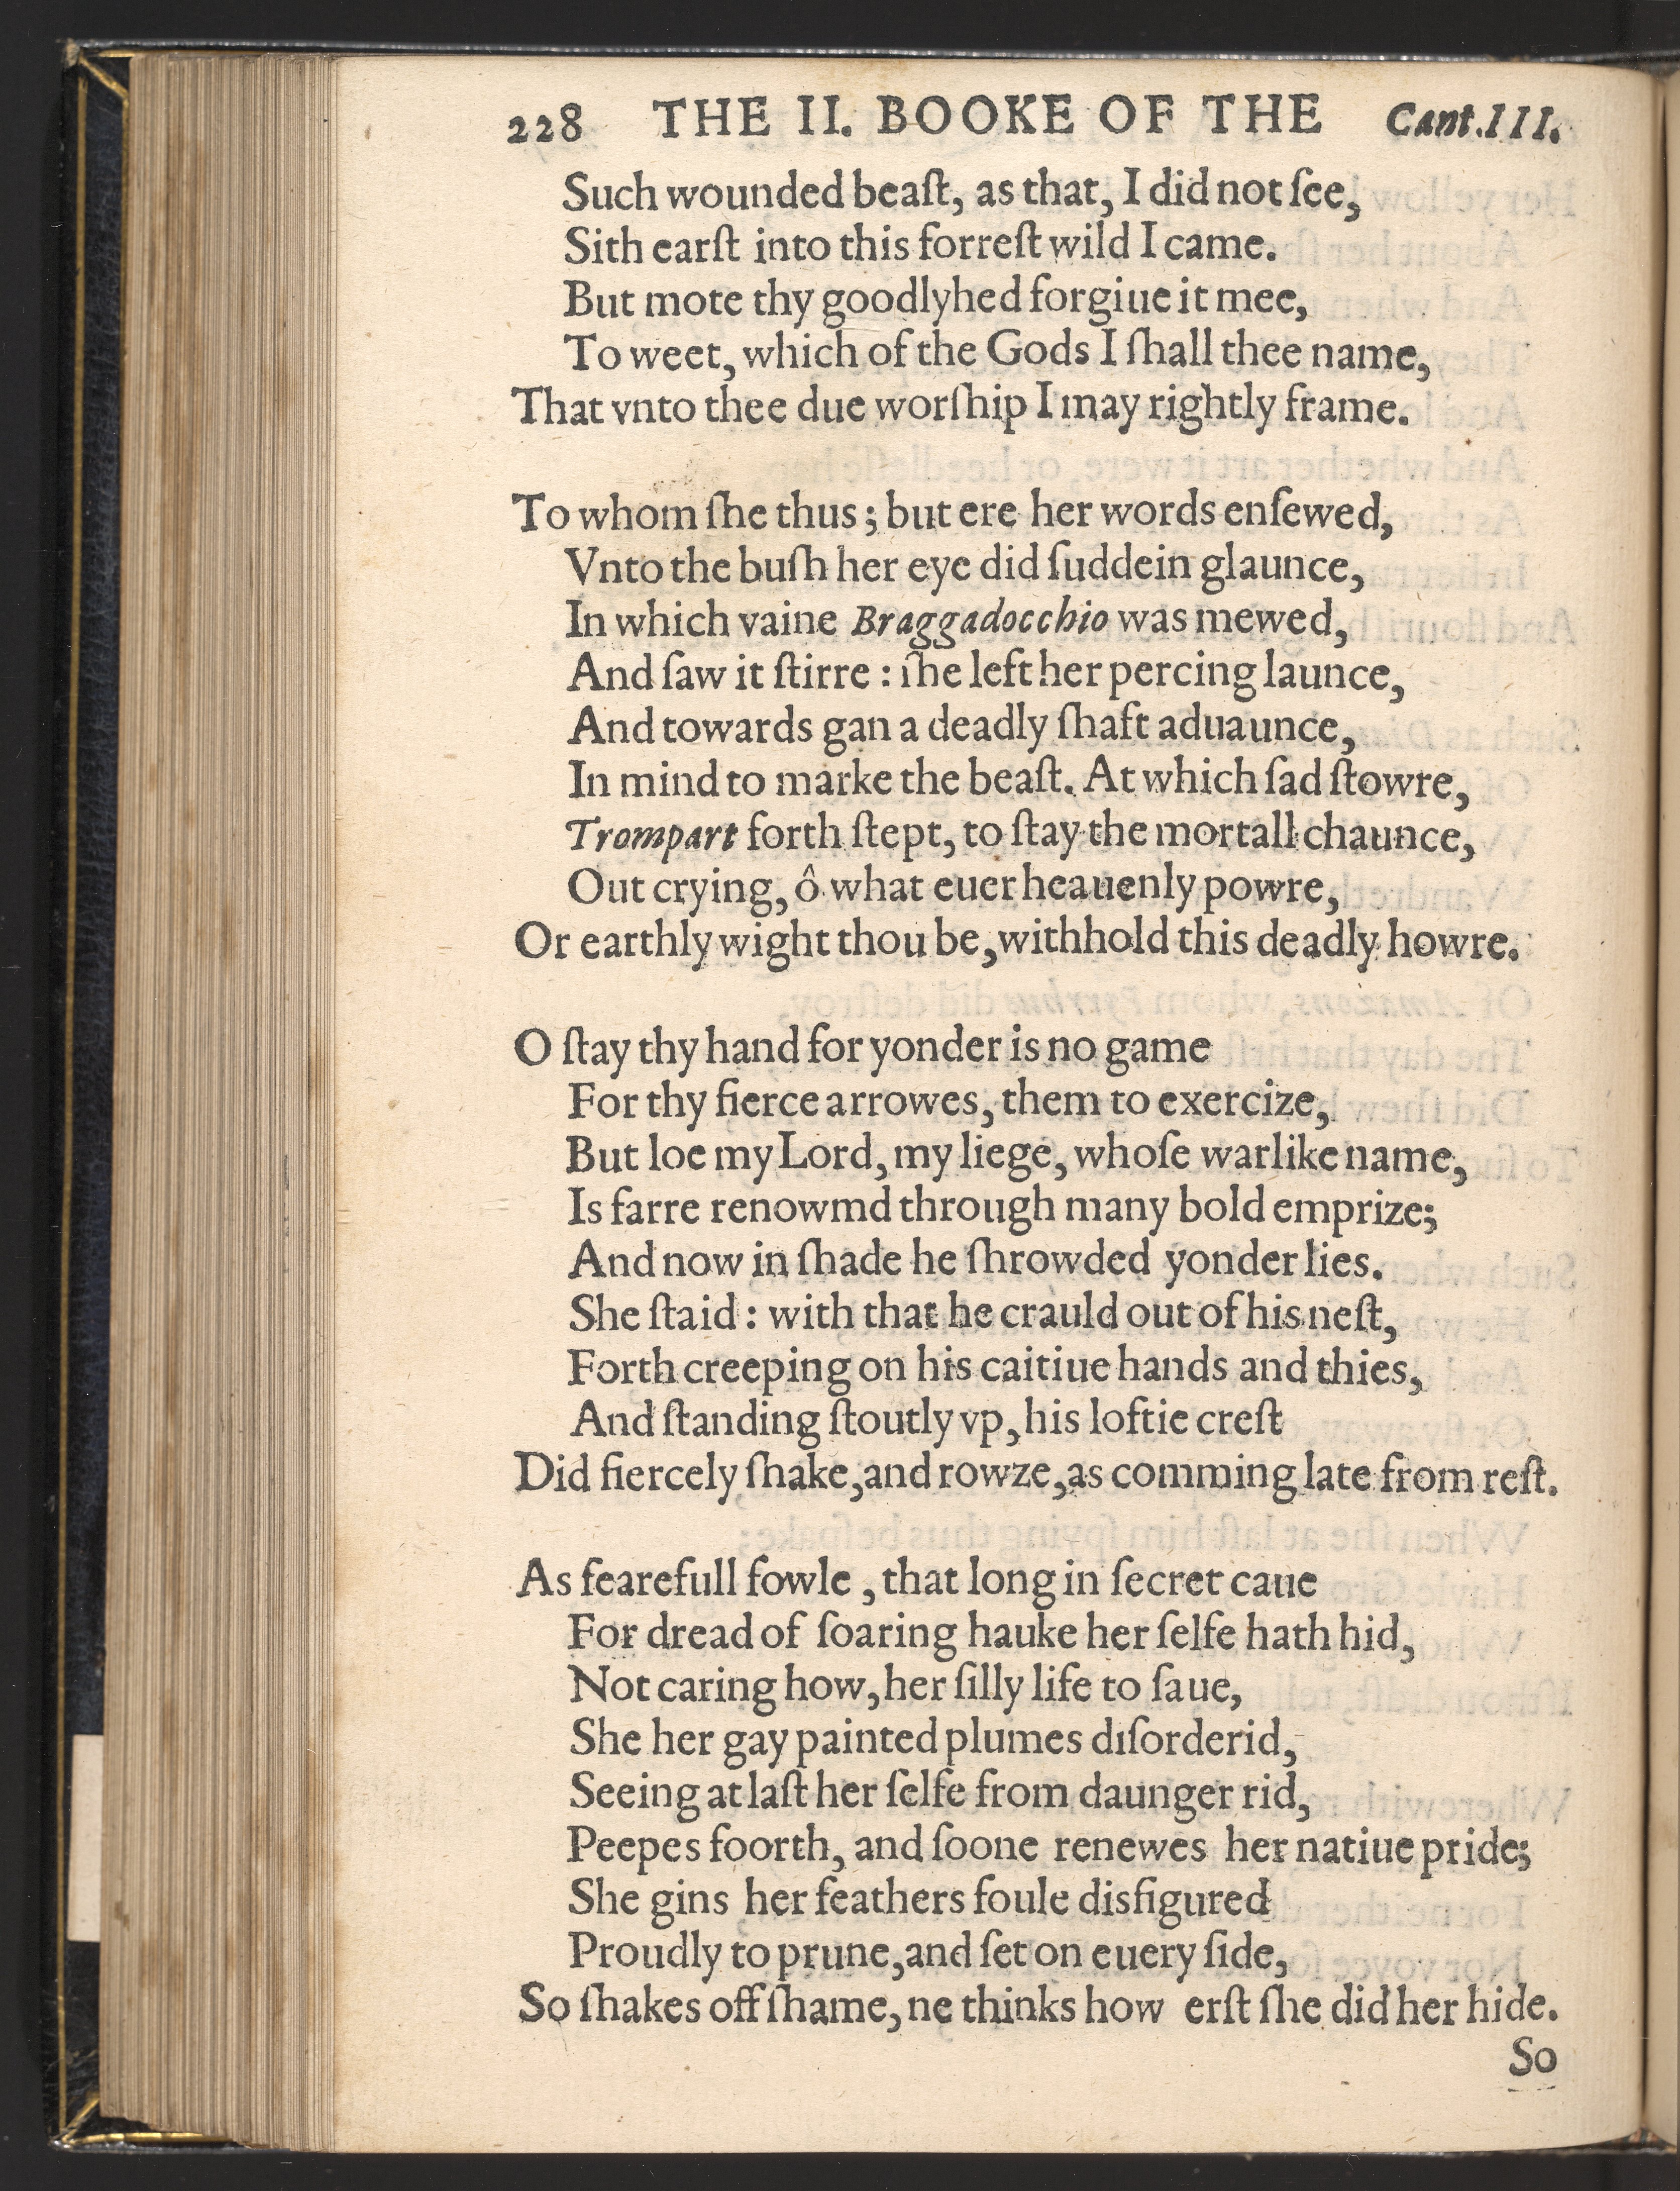 228 THE II. BOOKE OF THE Cant.III.
Such wounded beaſt, as that, I did not ſee,
Sith earſt into this forreſt wild I came.
But mote thy goodlyhed forgiue it mee,
To weet, which of the Gods I ſhall thee name,
That vnto thee due worſhip I may rightly frame.

To whom ſhe thus; but ere her words enſewed,
Vnto the buſh her eye did ſuddein glaunce,
In which vaine Braggadocchio was mewed,
And ſaw it ſtirre: ſhe left her percing launce,
And towards gan a deadly ſhaft aduaunce,
In mind to marke the beaſt. At which ſad ſtowre,
Trompart forth ſtept, to ſtay the mortall chaunce,
Out crying, ô what euer heauenly powre,
Or earthly wight thou be, withhold this deadly howre.

O ſtay thy hand for yonder is no game
For thy fierce arrowes, them to exercize,
But loe my Lord, my liege, whoſe warlike name,
Is farre renowmd through many bold emprize;
And now in ſhade he ſhrowded yonder lies.
She ſtaid: with that he crauld out of his neſt,
Forth creeping on his caitiue hands and thies,
And ſtanding ſtoutly vp, his loftie creſt
Did fiercely ſhake, and rowze, as comming late from reſt.

As fearefull fowle, that long in ſecret caue
For dread of ſoaring hauke her ſelfe hath hid,
Not caring how, her ſilly life to ſaue,
She her gay painted plumes diſorderid,
Seeing at laſt her ſelfe from daunger rid,
Peepes foorth, and ſoone renewes her natiue pride;
She gins her feathers foule disfigured
Proudly to prune, and ſet on euery ſide,
So ſhakes off ſhame, ne thinks how erſt ſhe did her hide.
So